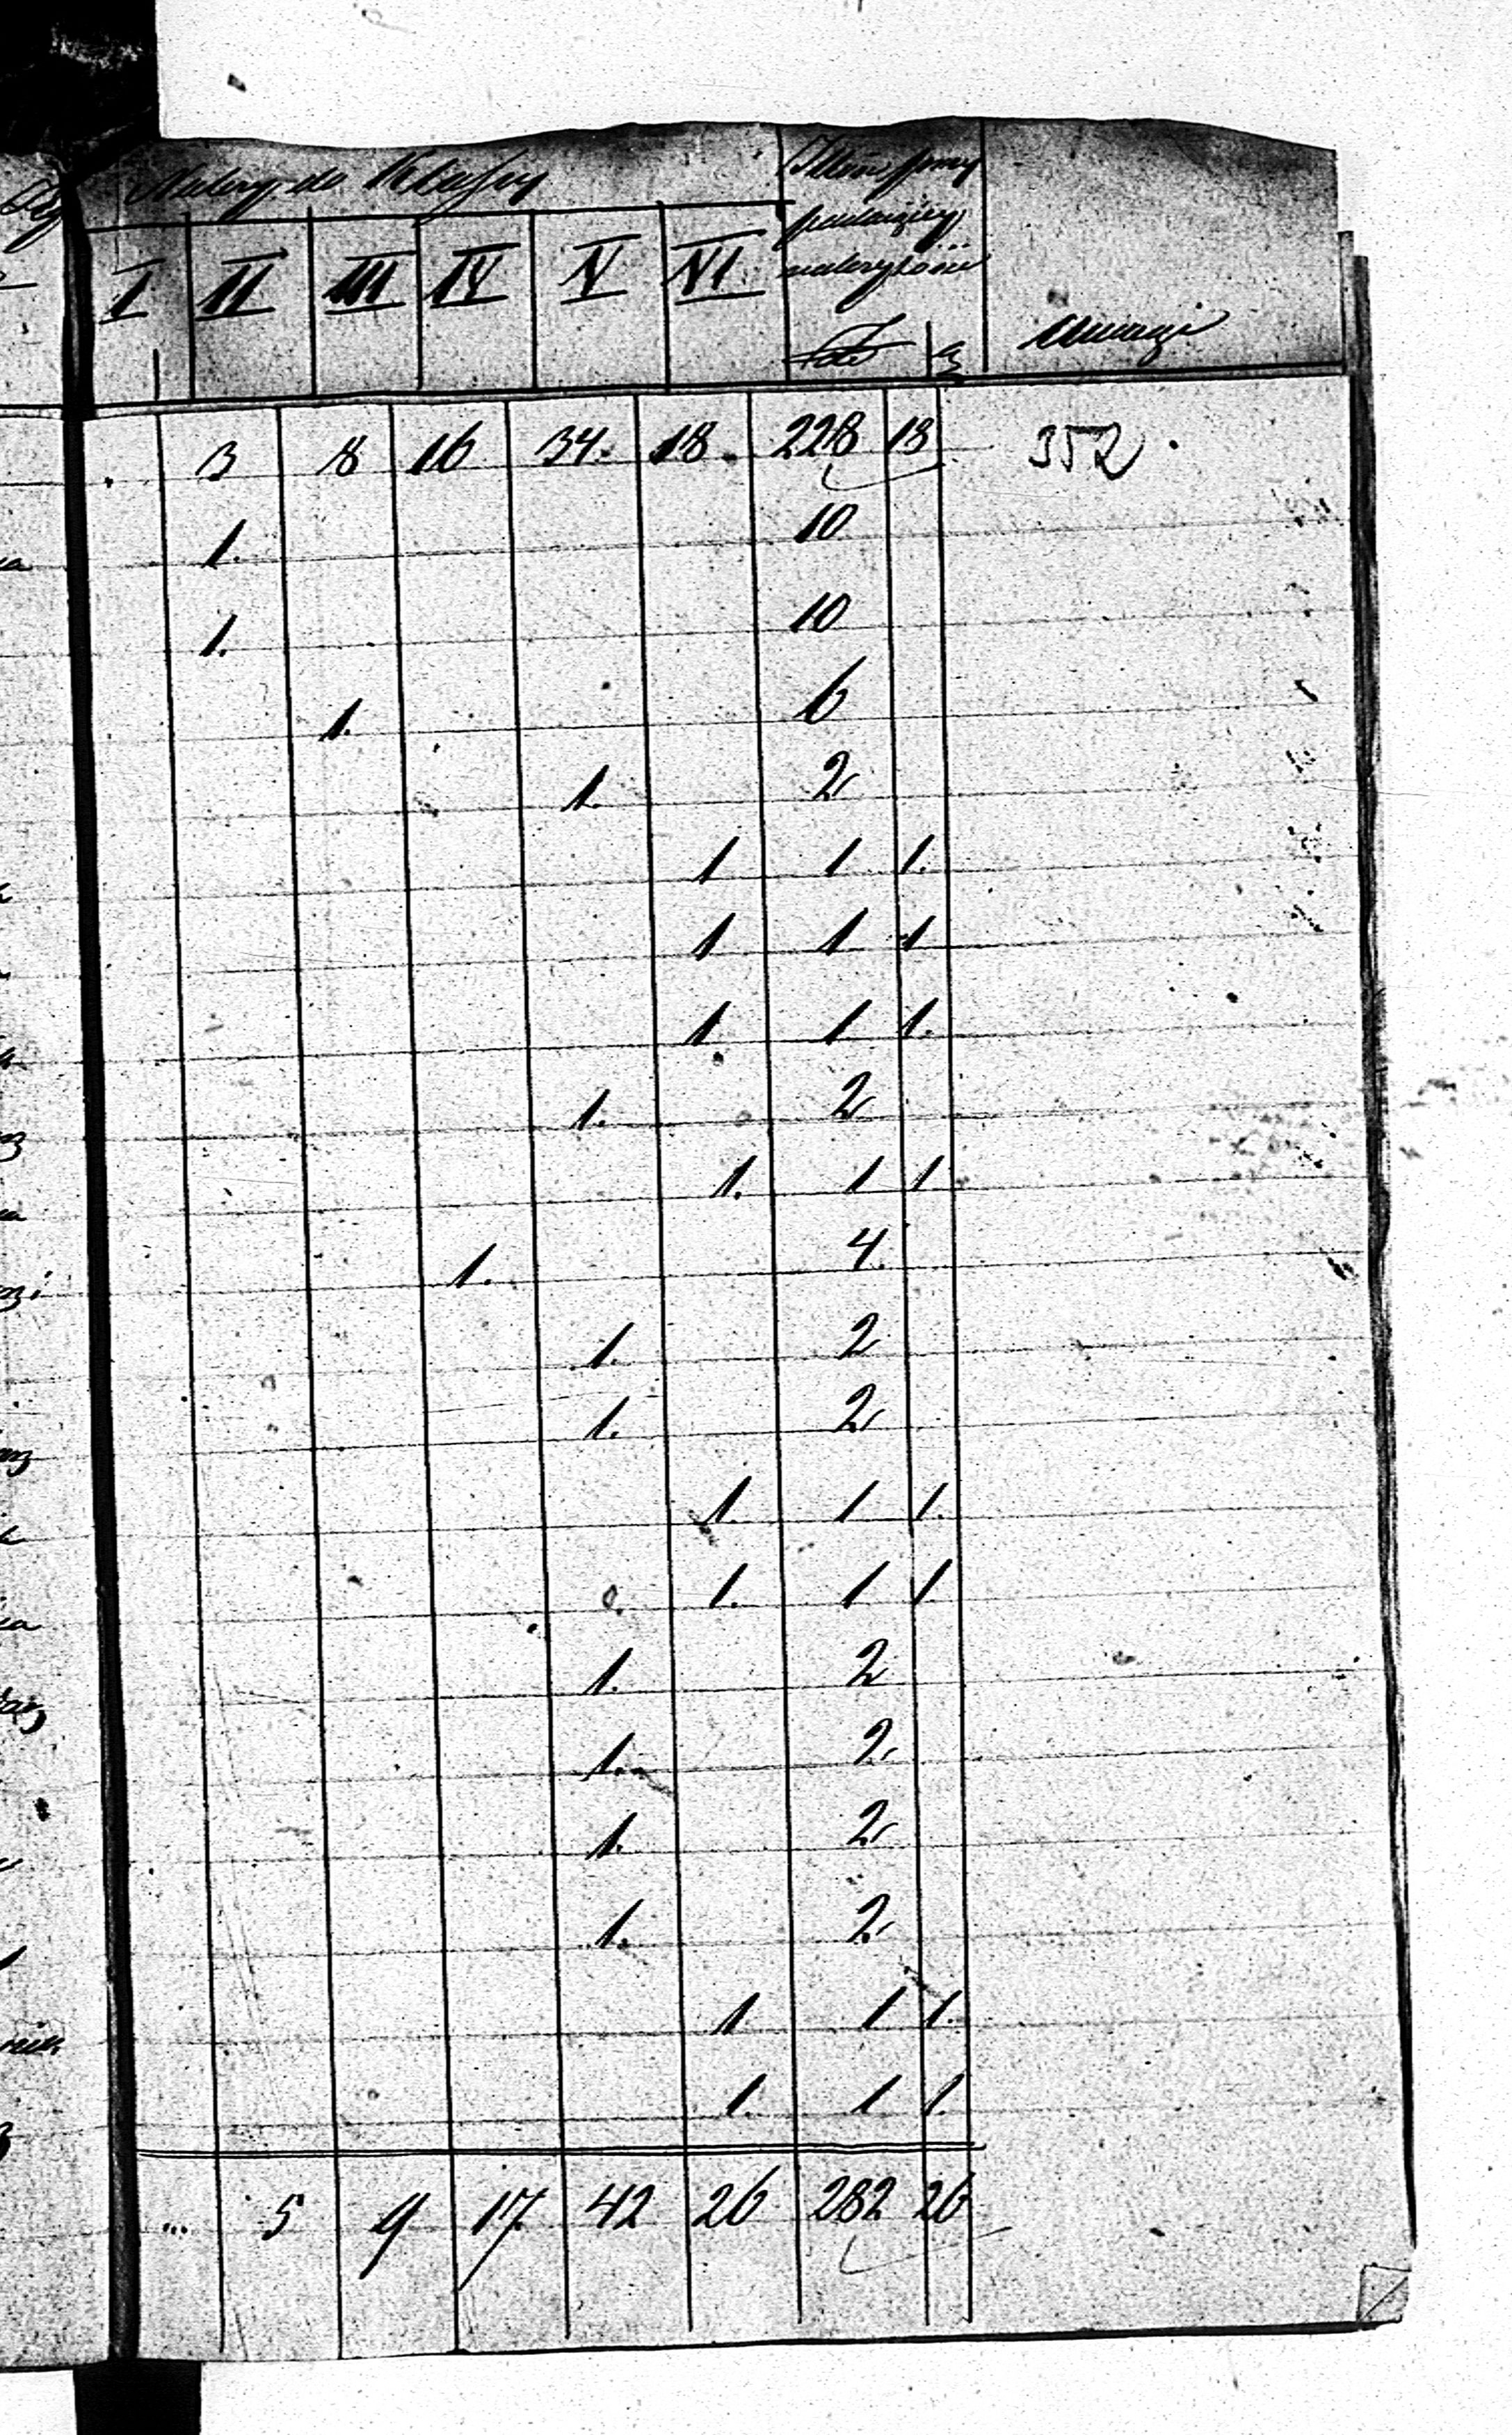 Należy do Klassy
I II III IV V VI
Uwagi
3 8 16 34. 18. 228 18 352.
1. 10
1. 10
1. 6
1. 2
1 1 1.
1 1 1
1. 1 1.
1. 2
1. 1 1
1. 4.
1. 2
1. 2
1. 1 1.
1. 1 1
1. 2
1. 2
1. 2
1. 2
1 1 1.
1. 1 1.
... 5 9 17 42 26 282 26